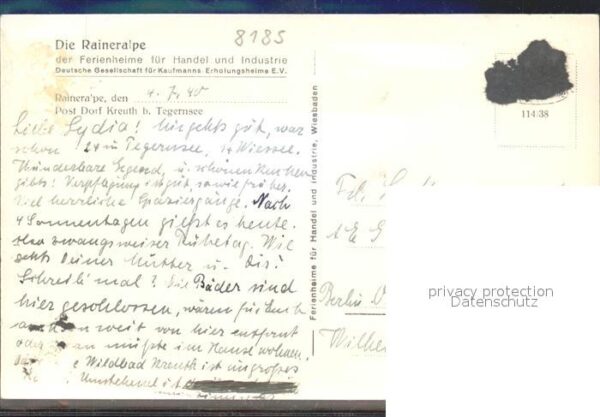 8185
Die Raineralpe
der Ferienheime für Handel und Industrie
Deutsche Gesellschaft für Kaufmanns Erholungsheime E.V.
Raineralpe, den 4. 7. 40
Post Dorf Kreuth b. Tegernsee
Liebe Lydia! Mir gehts gut, war
schon 2x in Tegernsee, 1x Wiessee.
Wunderbare Gegend, u. schönen Kuchen
gibts! Verpflegung ist gut, sowie früher.
Viel herrliche Spaziergänge. Nach
4 Sonnentagen gießt es heute.
Also zwangsweiser Ruhetag. Wie
gehts Deiner Mutter u. Dir?
Schreib' mal! Die Bäder sind
hier geschlossen, wären für Euch
weit von hier entfernt
oder man müßte im Hause wohnen.
Wildbad Kreuth ist ein großes
Umstehend ist
Ferienheime für Handel und Industrie, Wiesbaden
114:38
Frl.
Berlin
Wilhel
privacy protection
Datenschutz